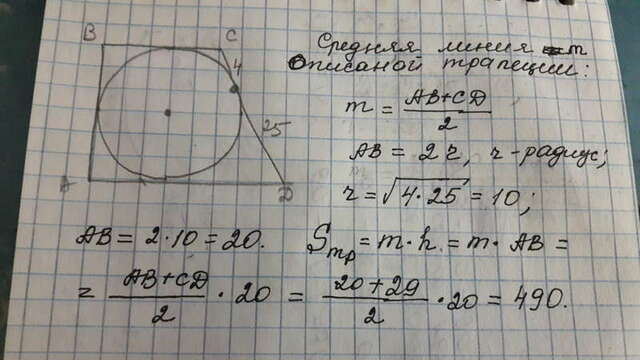 B
C
4
25
A
D
Средняя линия m
описаной трапеции:
m = AB+CD / 2
AB = 2r, r-радиус;
r = √4·25 = 10;
AB = 2·10 = 20.
Sтр = m·h = m·AB =
= AB+CD / 2 · 20 = 20+29 / 2 · 20 = 490.